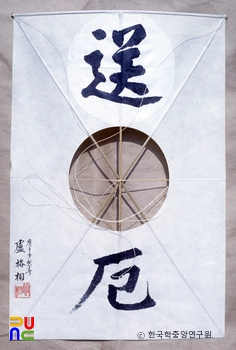 送
厄
盧裕相
PUNC
© 한국학중앙연구원